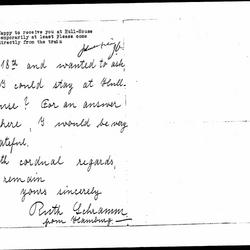 appy to receive you at Hull-House
emporarily at least Please come
directly from the train
18th and wanted to ask
I could stay at Hull-
use? For an answer
here, I would be very
ateful.
th cordial regards,
remain
yours sincerely
Ruth Schramm
from Hamburg